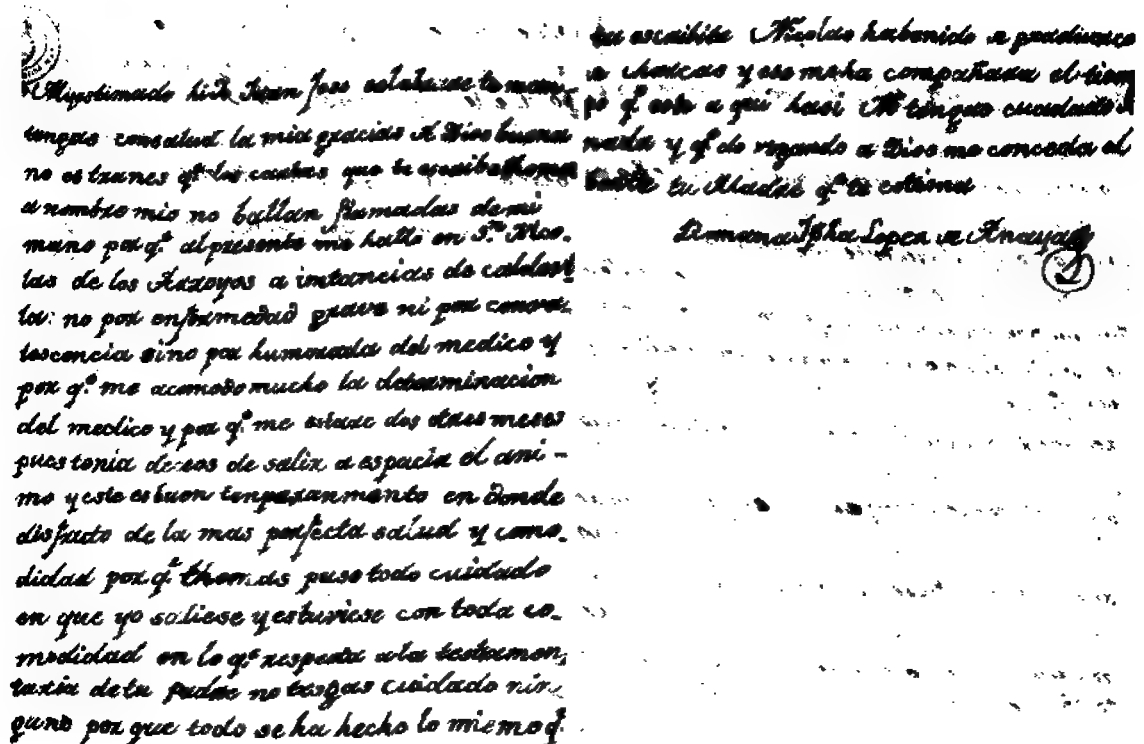 Muy estimado hijo Juan Jose celebrare te man-
tengas con salud la mia gracias A Dios buena
no estranes q.e las cartas que te escribe thomas
a nombre mio no ballan firmadas de mi
mano por q.e al presente me hallo en S.n Nico-
las de los Arroyos a instancias de
no por enfermedad grave ni por conva-
lescencia sino por humorada del medico y
por q.e me acomodo mucho la determinacion
del medico y por q.e me estare dos o tres meses
pues tenia deseos de salir a espacia el ani-
mo y este es buen temperanmento en donde
disfruto de la mas perfecta salud y como-
didad por q.e thomas puso todo cuidado
en que yo saliese y estuviese con toda co-
modidad en lo q.e respecta a la testamen-
taria de tu padre no tengas cuidado nin-
guno por que todo se ha hecho lo mismo q.e
tu escribite Nicolas ha benido a
a charcas y ese me ha compañado el tiem
po q.e este a qui hasi No tengas cuidado
nada y q.do rogando a Dios me conceda el
berte tu Madre q.e te estima
Lopez de Anaya